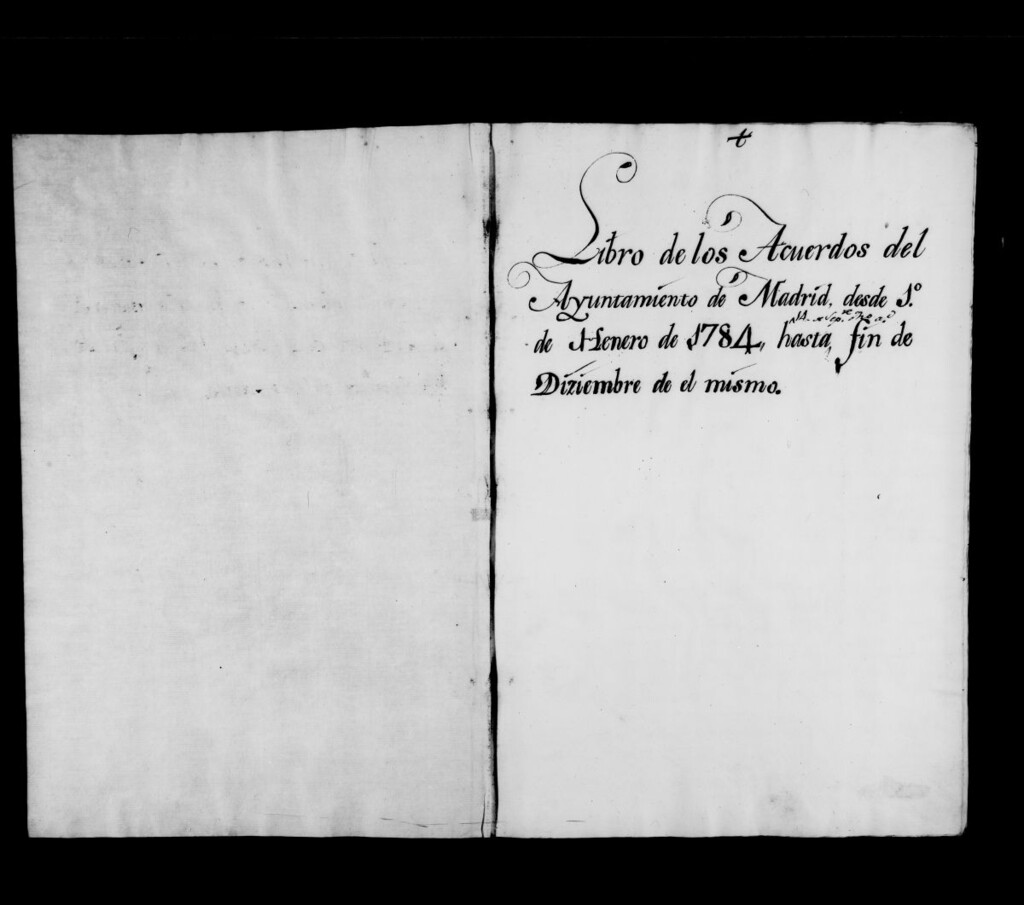 +
Libro de los Acuerdos del
Ayuntamiento de Madrid, desde 1.º
de Henero de 1784, hasta, fin de
Diziembre de el mismo.